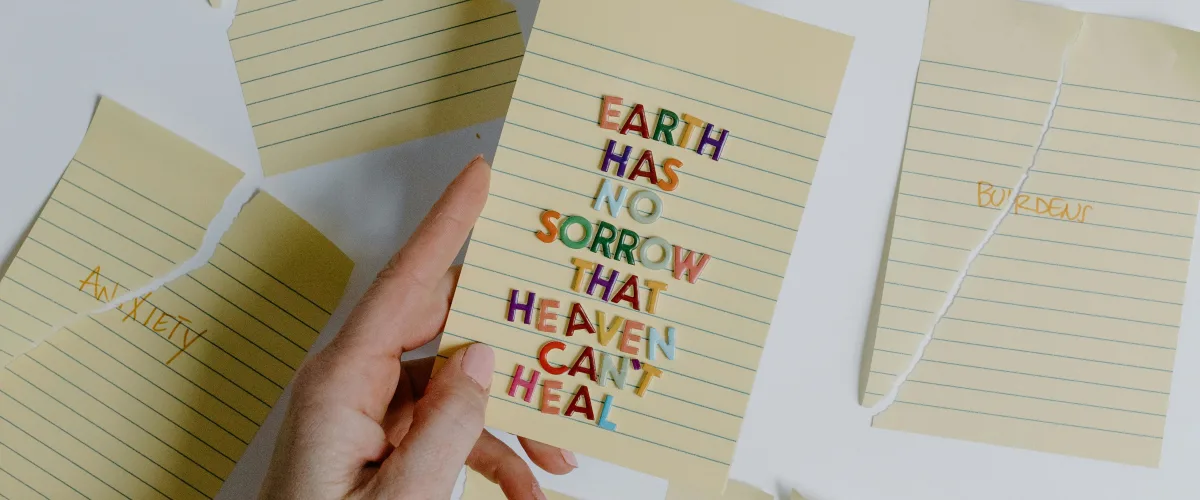 ANXIETY
EARTH
HAS
NO
SORROW
THAT
HEAVEN
CAN'T
HEAL
BURDENS